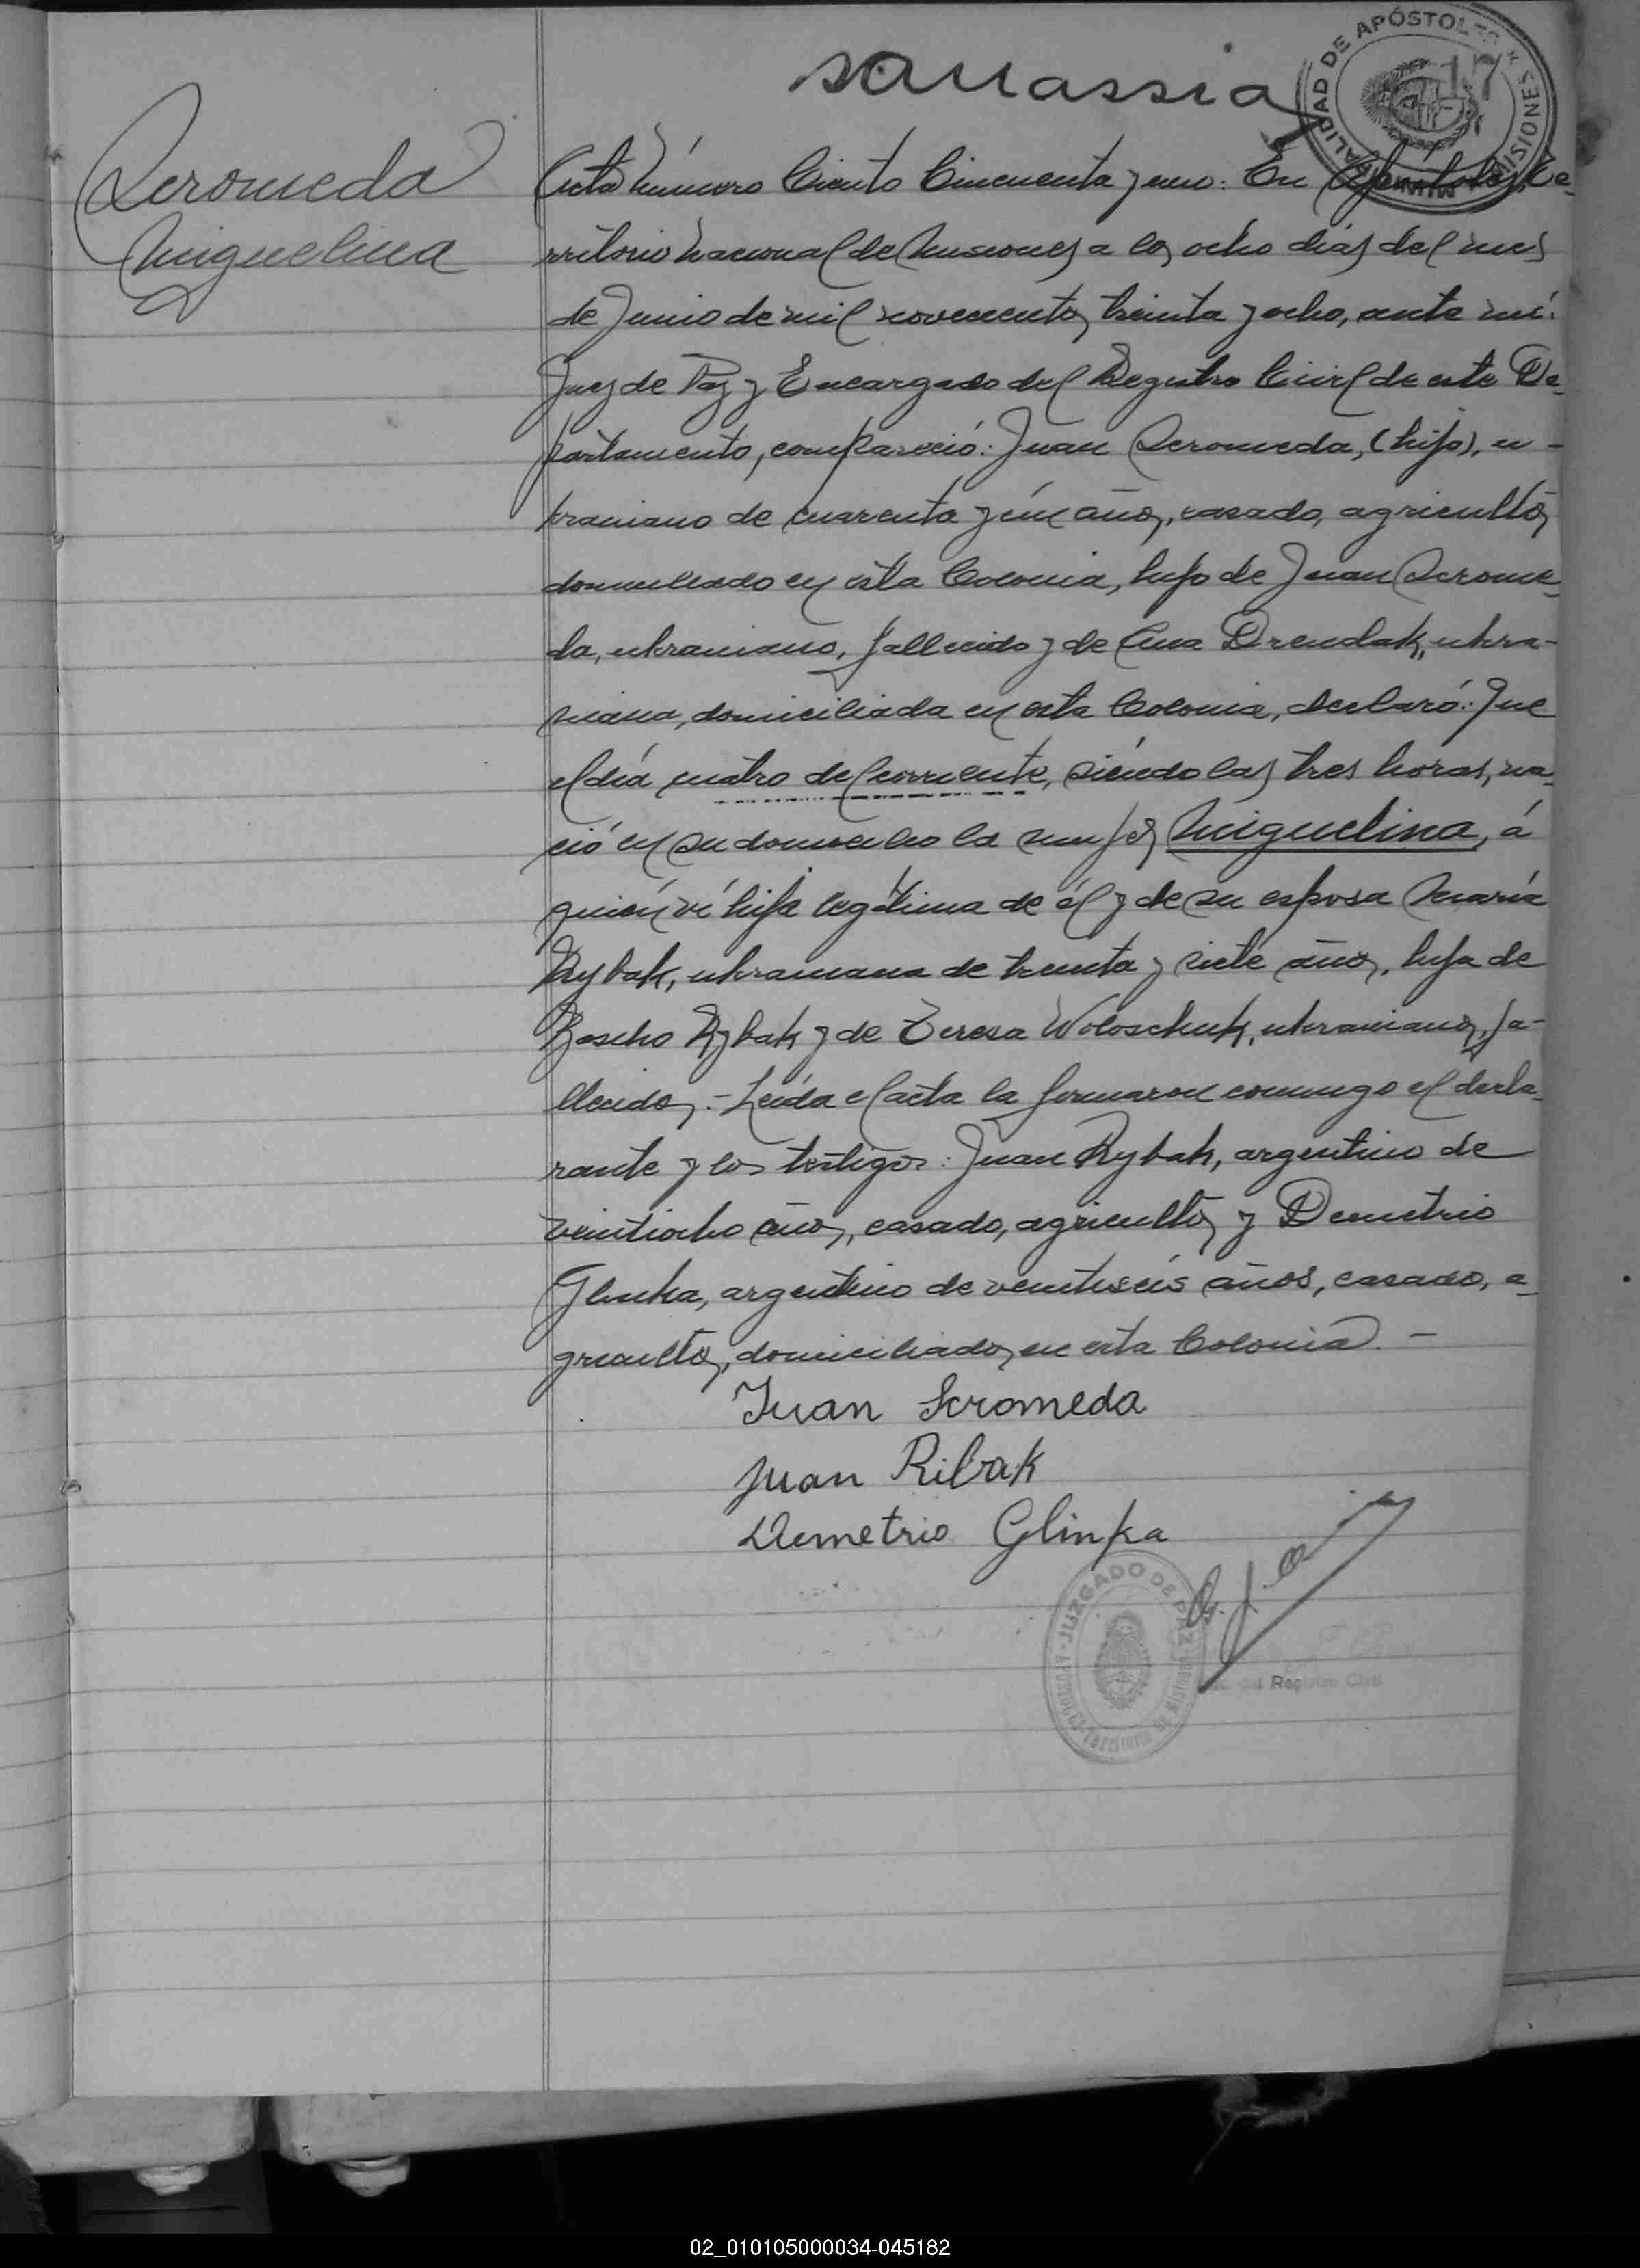 MUNICIPALIDAD DE APÓSTOLES
MISIONES
17
Seromeda
Miguelina
Acta número Ciento Cincuenta y uno: En Apóstoles, Te-
rritorio Nacional de Misiones a los ocho días del mes
de Junio de mil novecientos treinta y ocho, ante mí:
Juez de Paz y Encargado del Registro Civil de este De-
partamento, compareció: Juan Seromeda, (hijo), u-
kraniano de cuarenta y ún años, casado, agricultor,
domiciliado en esta Colonia, hijo de Juan Serome-
da, ukraniano, fallecido y de Ana Drendak, ukra-
niana, domiciliada en esta Colonia, declaró: Que
el día cuatro del corriente, siéndo las tres horas, na-
ció en su domicilio la mujer Miguelina, á
quién ví hija legítima de él y de su esposa María
Rybak, ukraniana de treinta y siete años, hija de
Rybak y de Teresa Woloschuk, ukranianos, fa-
llecidos.- Leída el acta la firmaron conmigo el decla-
rante y los testigos: Juan Rybak, argentino de
veintiocho años, casado, agricultor y Demetrio
Glinka, argentino de veintiseis años, casado, a-
gricultor, domiciliados en esta Colonia.-
Juan Seromeda
Juan Ribak
Demetrio Glinka
JUZGADO DE PAZ
APOSTOLES - Territorio de Misiones
del Registro Civil
02_010105000034-045182